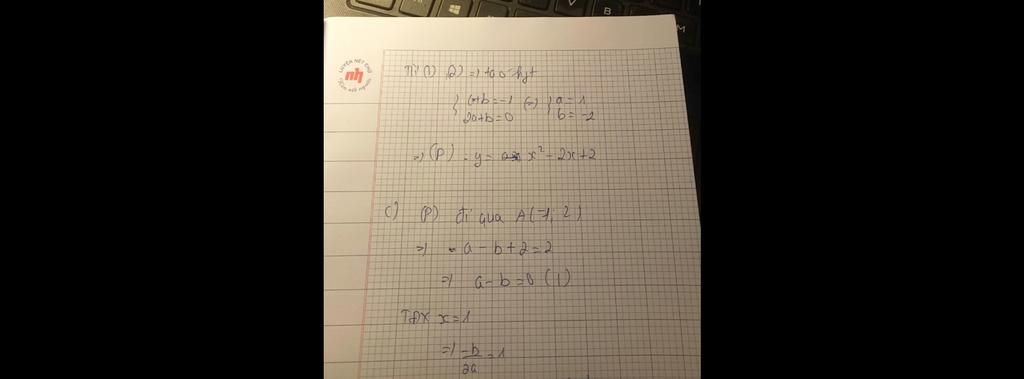 LUYỆN NÉT CHỮ
nh
Rèn nết người
Từ (1), (2) => ta có hpt
{ a+b=-1
2a+b=0 (=) { a=1
b=-2
=> (P): y= x² - 2x+2
c) (P) đi qua A(-1; 2)
=> a - b + 2 = 2
=> a - b = 0 (1)
TĐX x = 1
=> -b/2a = 1
V
B
M